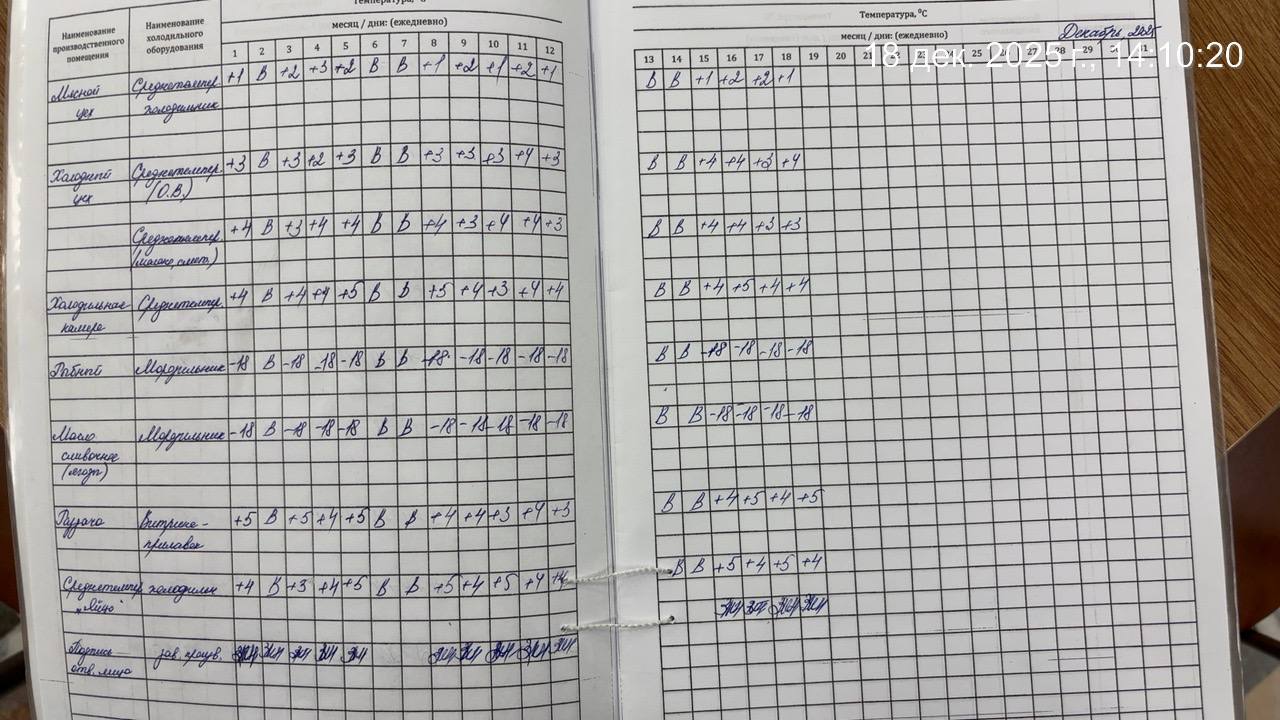 Температура, °С
Наименование производственного помещения
Наименование холодильного оборудования
месяц / дни: (ежедневно)
1 2 3 4 5 6 7 8 9 10 11 12
Мясной цех Среднетемпер. холодильник +1 В +2 +3 +2 В В +1 +2 +1 +2 +1
Холодный цех Среднетемпер. (О.В.) +3 В +3 +2 +3 В В +3 +3 +3 +4 +3
Среднетемпер. +4 В +3 +4 +4 В В +4 +3 +4 +4 +3
Холодильная камера Среднетемпер. +4 В +4 +4 +5 В В +5 +4 +3 +4 +4
Рыбный Морозильник -18 В -18 -18 -18 В В -18 -18 -18 -18 -18
Масло сливочное Морозильник -18 В -18 -18 -18 В В -18 -18 -18 -18 -18
Раздача Витрина-прилавок +5 В +5 +4 +5 В В +4 +4 +3 +4 +3
Среднетемпер. "Яйцо" холодильн +4 В +3 +4 +5 В В +5 +4 +5 +4 +4
Подпись отв. лица зав. произв.
Температура, °С
месяц / дни: (ежедневно)
Декабрь, 2025
18 дек. 2025 г., 14:10:20
13 14 15 16 17 18 19 20 21 25 28 29
В В +1 +2 +2 +1
В В +4 +4 +3 +4
В В +4 +4 +3 +3
В В +4 +5 +4 +4
В В -18 -18 -18 -18
В В -18 -18 -18 -18
В В +4 +5 +4 +5
В В +5 +4 +5 +4